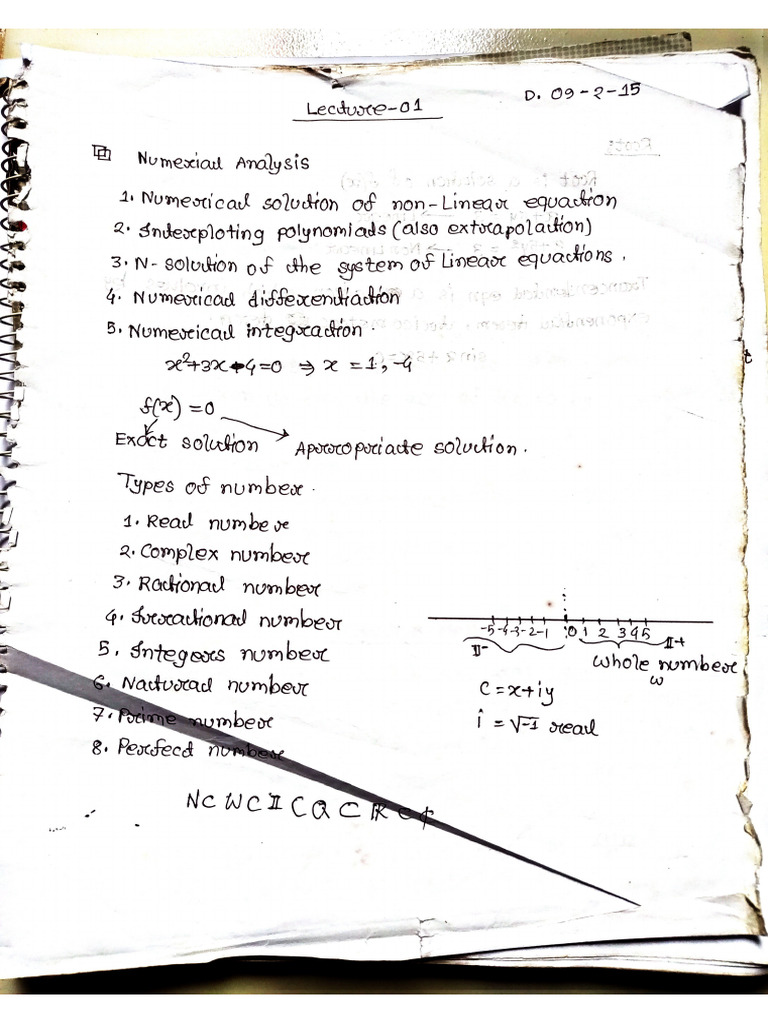 Lecture-01
D. 09-2-15
Numerial Analysis
1. Numerical solution of non-Linear equation
2. Interploting polynomials (also extrapolation)
3. N-solution of the system of Linear equations.
4. Numerical differentiation
5. Numerical integration.
x²+3x-4=0 ⇒ x = 1, -4
f(x) = 0
Exact solution Appropriate solution.
Types of number.
1. Real number
2. Complex number
3. Rational number
4. Irrational number
5. Integers number
6. Natural number
7. Prime number
8. Perfect number
-5 -4 -3 -2 -1 0 1 2 3 4 5
II- II+
Whole number
W
C = x+iy
i = √-1 real
N ⊂ W ⊂ II ⊂ Q ⊂ R ⊂ ¢